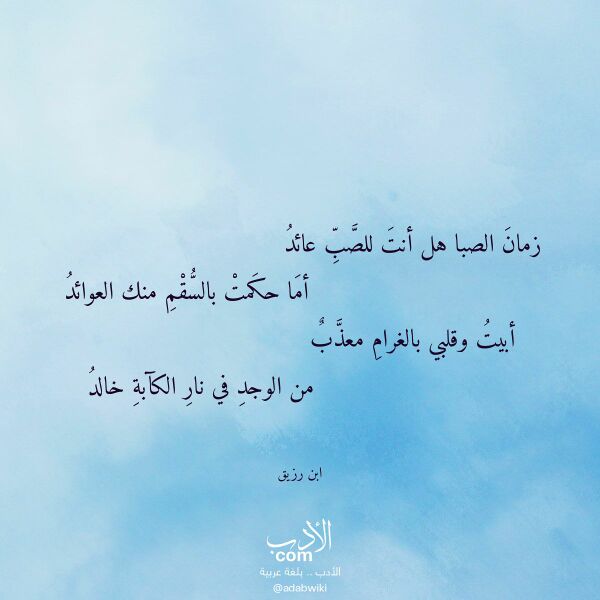 زمانَ الصبا هل أنتَ للصَّبِّ عائدُ
أمَا حكَمتْ بالسُّقْمِ منك العوائدُ
أبيتُ وقلبي بالغرامِ معذَّبٌ
من الوجدِ في نارِ الكآبةِ خالدُ
ابن رزيق
الأدب
com
الأدب .. بلغة عربية
@adabwiki